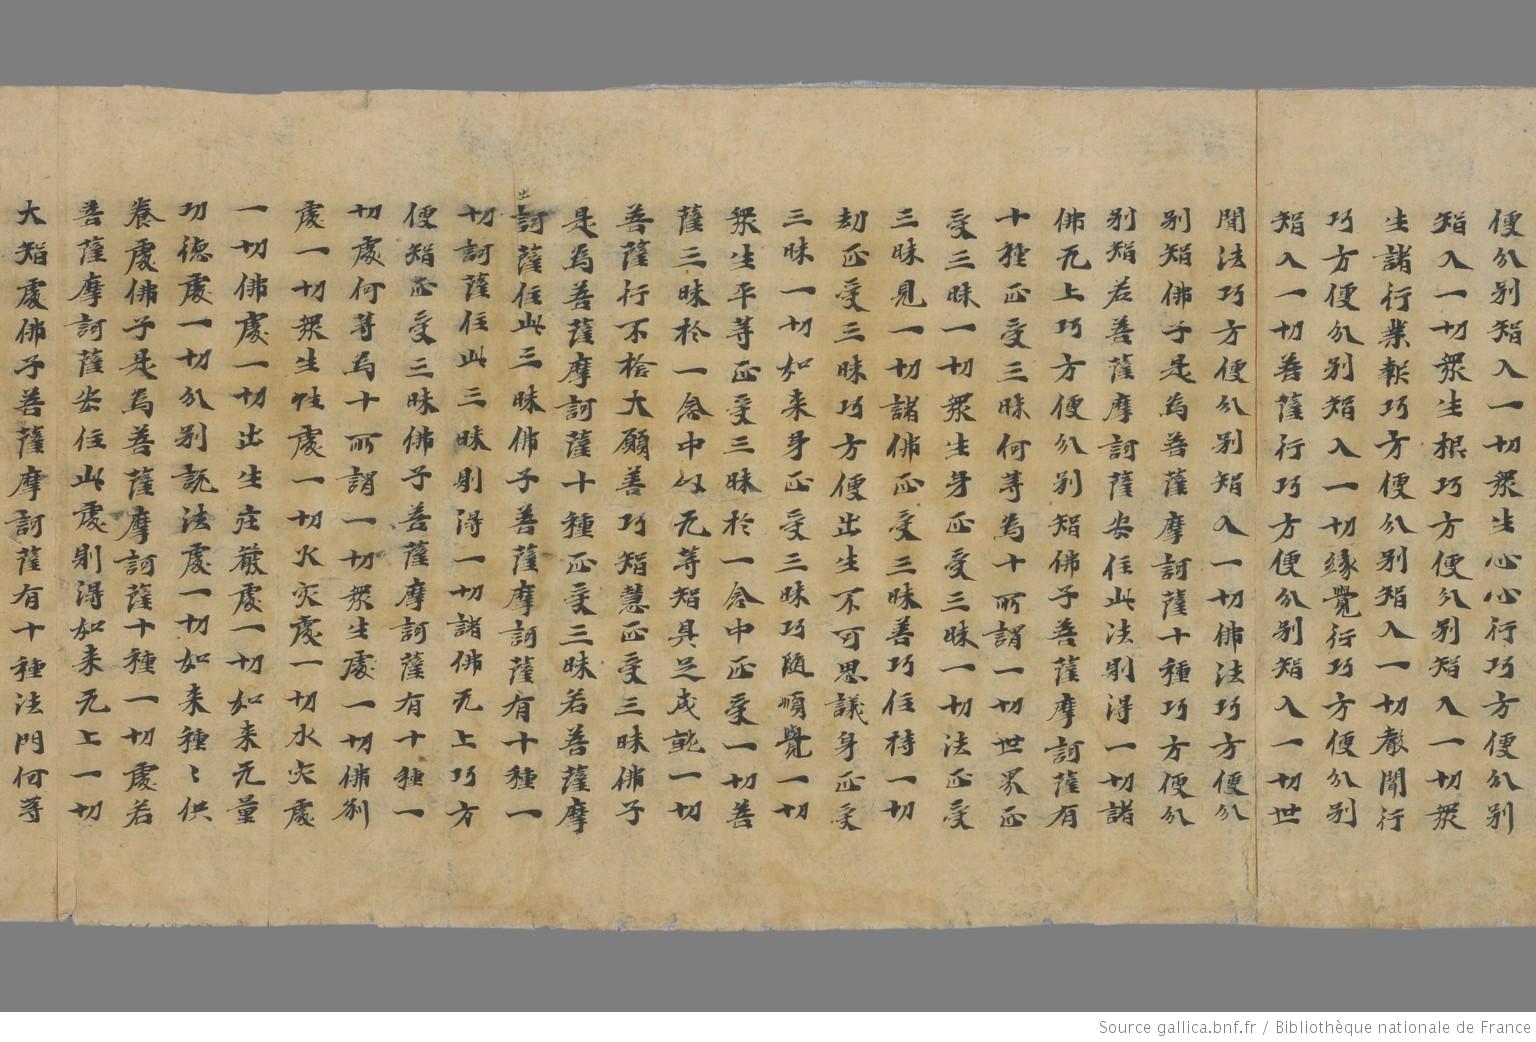 便分別智入一切眾生心心行巧方便分別
智入一切眾生根巧方便分別智入一切眾
生諸行業報巧方便分別智入一切聲聞行
巧方便分別智入一切緣覺行巧方便分別
智入一切菩薩行巧方便分別智入一切世
間法巧方便分別智入一切佛法巧方便分
別智佛子是為菩薩摩訶薩十種巧方便分
別智若菩薩摩訶薩安住此法則得一切諸
佛无上巧方便分別智佛子菩薩摩訶薩有
十種正受三昧何等為十所謂一切世界正
受三昧一切眾生身正受三昧一切法正受
三昧見一切諸佛正受三昧善巧住持一切
劫正受三昧巧方便出生不可思議身正受
三昧一切如来身正受三昧巧随順覺一切
眾生平等正受三昧於一念中正受一切菩
薩三昧於一念中以无等智具足成就一切
菩薩行不捨大願善巧智慧正受三昧佛子
是為菩薩摩訶薩十種正受三昧若菩薩摩
訶薩住此三昧佛子菩薩摩訶薩有十種一
切訶薩住此三昧則得一切諸佛无上巧方
便智正受三昧佛子菩薩摩訶薩有十種一
切處何等為十所謂一切眾生處一切佛剎
處一切眾生性處一切火灾處一切水灾處
一切佛處一切出生庄嚴處一切如来无量
功德處一切分別説法處一切如来種〻供
養處佛子是為菩薩摩訶薩十種一切處若
菩薩摩訶薩安住此處則得如来无上一切
大智處佛子菩薩摩訶薩有十種法門何等
Source gallica.bnf.fr / Bibliothèque nationale de France